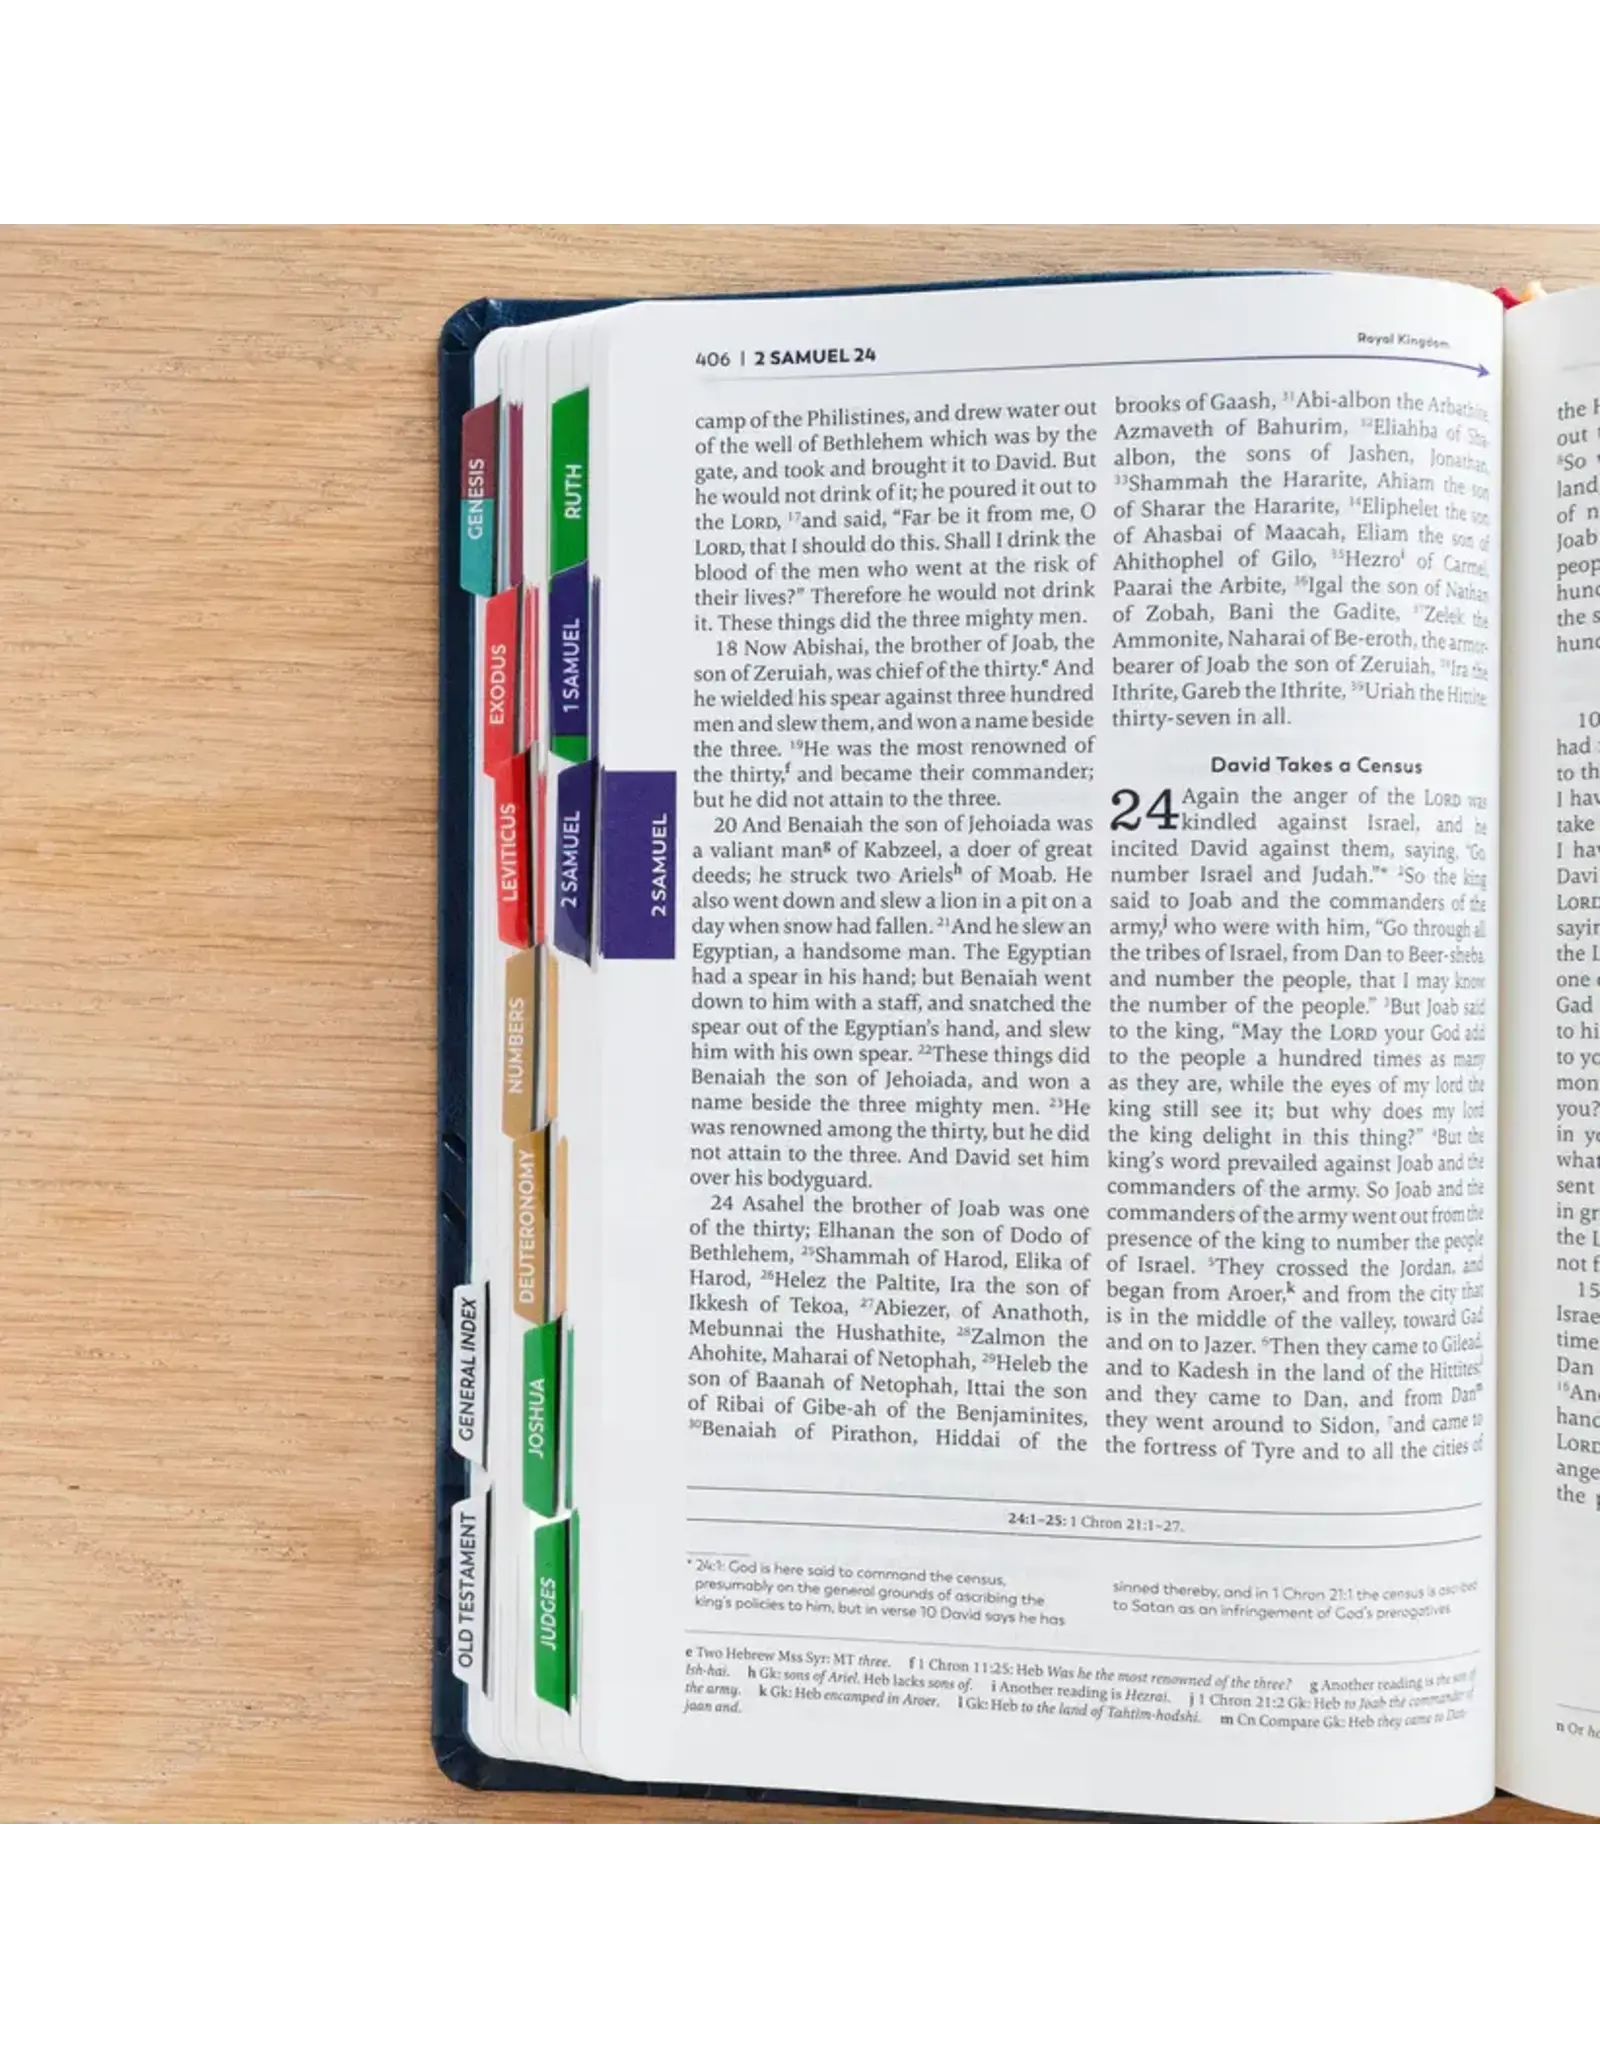 GENESIS
EXODUS
LEVITICUS
NUMBERS
DEUTERONOMY
JOSHUA
JUDGES
RUTH
1 SAMUEL
2 SAMUEL
2 SAMUEL
GENERAL INDEX
OLD TESTAMENT
406 | 2 SAMUEL 24
Royal Kingdom
camp of the Philistines, and drew water out
of the well of Bethlehem which was by the
gate, and took and brought it to David. But
he would not drink of it; he poured it out to
the LORD, ¹⁷and said, “Far be it from me, O
LORD, that I should do this. Shall I drink the
blood of the men who went at the risk of
their lives?” Therefore he would not drink
it. These things did the three mighty men.
18 Now Abishai, the brother of Joab, the
son of Zeruiah, was chief of the thirty.ᵉ And
he wielded his spear against three hundred
men and slew them, and won a name beside
the three. ¹⁹He was the most renowned of
the thirty,ᶠ and became their commander;
but he did not attain to the three.
20 And Benaiah the son of Jehoiada was
a valiant manᵍ of Kabzeel, a doer of great
deeds; he struck two Arielsʰ of Moab. He
also went down and slew a lion in a pit on a
day when snow had fallen. ²¹And he slew an
Egyptian, a handsome man. The Egyptian
had a spear in his hand; but Benaiah went
down to him with a staff, and snatched the
spear out of the Egyptian’s hand, and slew
him with his own spear. ²²These things did
Benaiah the son of Jehoiada, and won a
name beside the three mighty men. ²³He
was renowned among the thirty, but he did
not attain to the three. And David set him
over his bodyguard.
24 Asahel the brother of Joab was one
of the thirty; Elhanan the son of Dodo of
Bethlehem, ²⁵Shammah of Harod, Elika of
Harod, ²⁶Helez the Paltite, Ira the son of
Ikkesh of Tekoa, ²⁷Abiezer, of Anathoth,
Mebunnai the Hushathite, ²⁸Zalmon the
Ahohite, Maharai of Netophah, ²⁹Heleb the
son of Baanah of Netophah, Ittai the son
of Ribai of Gibe-ah of the Benjaminites,
³⁰Benaiah of Pirathon, Hiddai of the
brooks of Gaash, ³¹Abi-albon the Arbathite,
Azmaveth of Bahurim, ³²Eliahba of Sha-
albon, the sons of Jashen, Jonathan,
³³Shammah the Hararite, Ahiam the son
of Sharar the Hararite, ³⁴Eliphelet the son
of Ahasbai of Maacah, Eliam the son of
Ahithophel of Gilo, ³⁵Hezroⁱ of Carmel,
Paarai the Arbite, ³⁶Igal the son of Nathan
of Zobah, Bani the Gadite, ³⁷Zelek the
Ammonite, Naharai of Be-eroth, the armor-
bearer of Joab the son of Zeruiah, ³⁸Ira the
Ithrite, Gareb the Ithrite, ³⁹Uriah the Hittite:
thirty-seven in all.
David Takes a Census
24 Again the anger of the LORD was
kindled against Israel, and he
incited David against them, saying, “Go
number Israel and Judah.”* ²So the king
said to Joab and the commanders of the
army,ʲ who were with him, “Go through all
the tribes of Israel, from Dan to Beer-sheba,
and number the people, that I may know
the number of the people.” ³But Joab said
to the king, “May the LORD your God add
to the people a hundred times as many
as they are, while the eyes of my lord the
king still see it; but why does my lord
the king delight in this thing?” ⁴But the
king’s word prevailed against Joab and the
commanders of the army. So Joab and the
commanders of the army went out from the
presence of the king to number the people
of Israel. ⁵They crossed the Jordan, and
began from Aroer,ᵏ and from the city that
is in the middle of the valley, toward Gad
and on to Jazer. ⁶Then they came to Gilead,
and to Kadesh in the land of the Hittites;ˡ
and they came to Dan, and from Danᵐ
they went around to Sidon, ⁷and came to
the fortress of Tyre and to all the cities of
24:1–25: 1 Chron 21:1–27.
* 24:1: God is here said to command the census,
presumably on the general grounds of ascribing the
king’s policies to him, but in verse 10 David says he has
sinned thereby, and in 1 Chron 21:1 the census is ascribed
to Satan as an infringement of God’s prerogatives
e Two Hebrew Mss Syr: MT three. f 1 Chron 11:25: Heb Was he the most renowned of the three? g Another reading is the son of
Ish-hai. h Gk: sons of Ariel. Heb lacks sons of. i Another reading is Hezrai. j 1 Chron 21:2 Gk: Heb to Joab the commander of
the army. k Gk: Heb encamped in Aroer. l Gk: Heb to the land of Tahtim-hodshi. m Cn Compare Gk: Heb they came to Dan-
jaan and.
out
⁸So
land
of n
Joab
the s
10
had
to th
I hav
take
I hav
Davi
LORD
the L
one
Gad
to hi
to yo
you?
in yo
what
sent
in gr
the L
not f
15
time
Dan
LORD
the
n Or